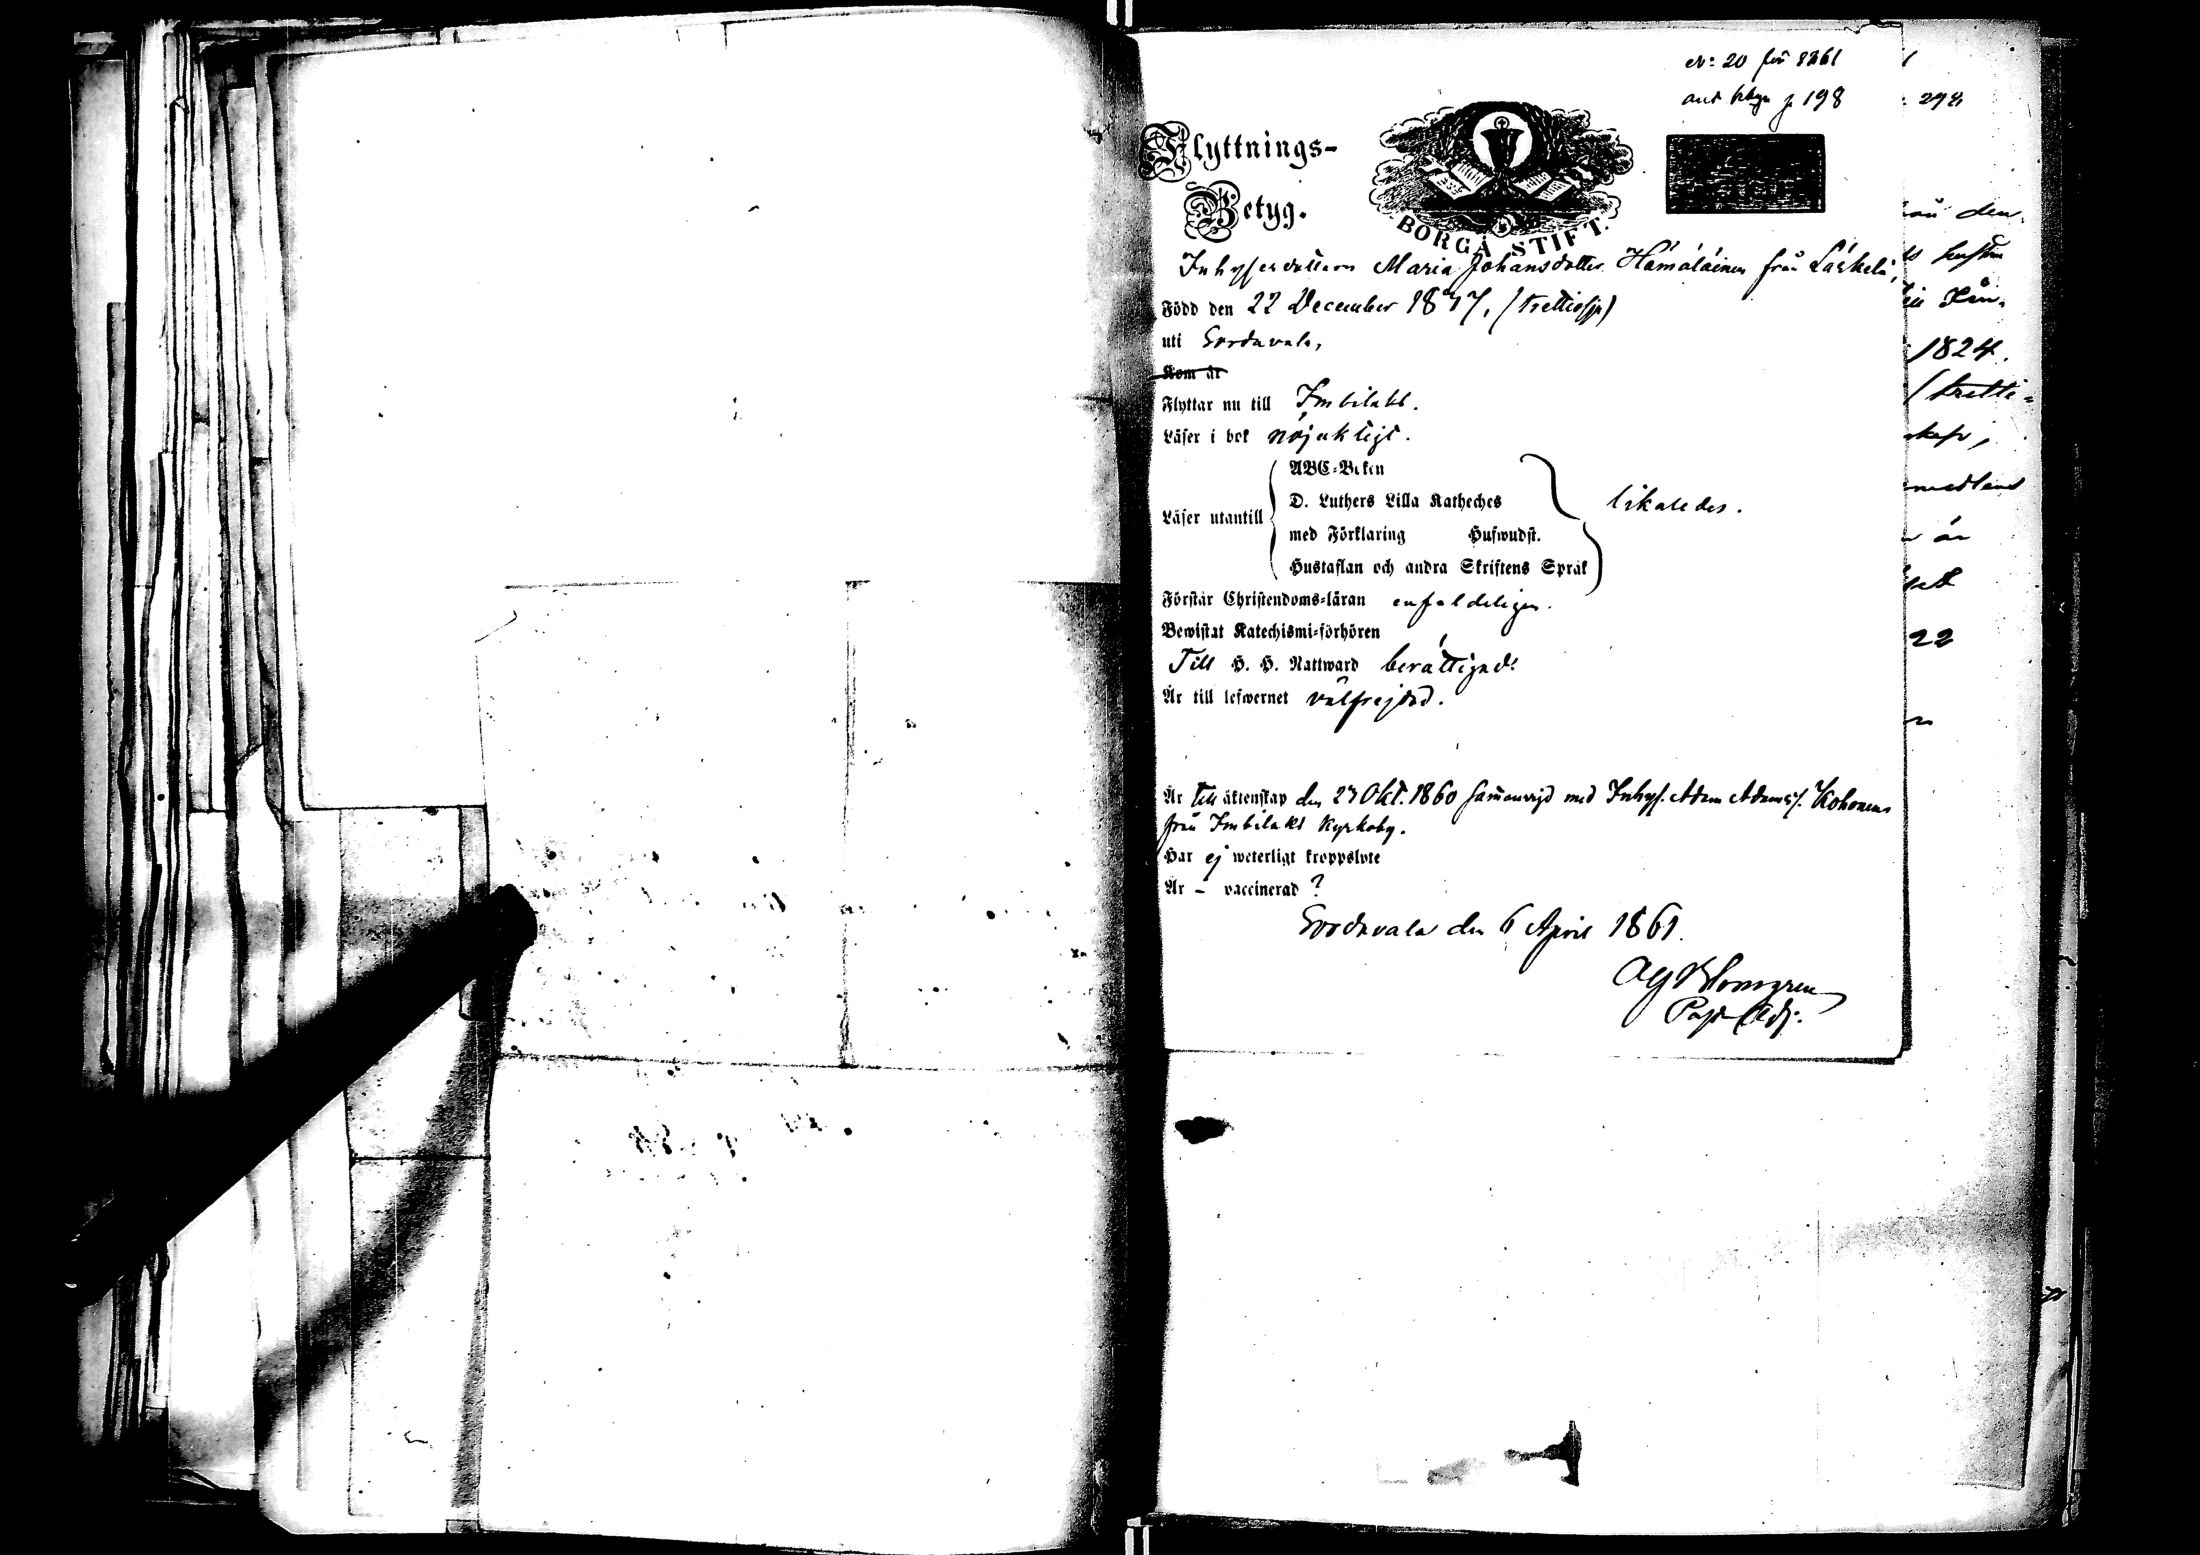 No: 20 för 1861
ant kbyn p 198
Flyttnings-
Betyg.
BORGÅ STIFT.
Inhysesdottern Maria Johansdotter Hämäläinen från Läskelä,
Född den 22 December 1837, (trettiosju)
uti Sordavala,
Kom år
Flyttar nu till Imbilaks.
Läser i bok nöjaktigt.
Läser utantill
ABC-Boken
D. Luthers Lilla Katheches
med Förklaring Hufwudst.
Hustaflan och andra Skriftens Språk
likaledes.
Förstår Christendoms-läran enfaldeligen.
Bewistat Katechismi-förhören
Till H. H. Nattward berättigad.
Är till lefwernet välfrejdad.
Är till äktenskap den 23 Okt. 1860 sammanvigd med Inhys. Adam Adamss. Kohonen
från Imbilaks Kyrkoby.
Har ej weterligt kroppslyte
Är – vaccinerad ?
Sordavala den 6 April 1861.
Blomgren
Past. Adj.
294
den
1824.
(tretti-
är
22